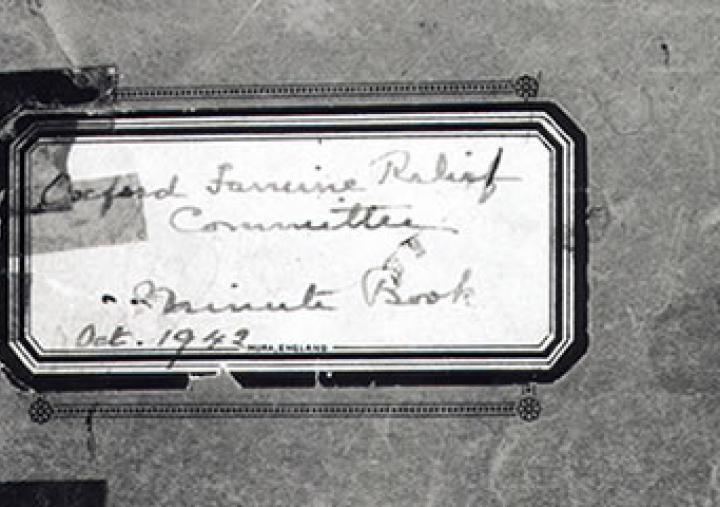 Oxford Famine Relief
Committee
Minute Book
Oct. 1942
ENGLAND